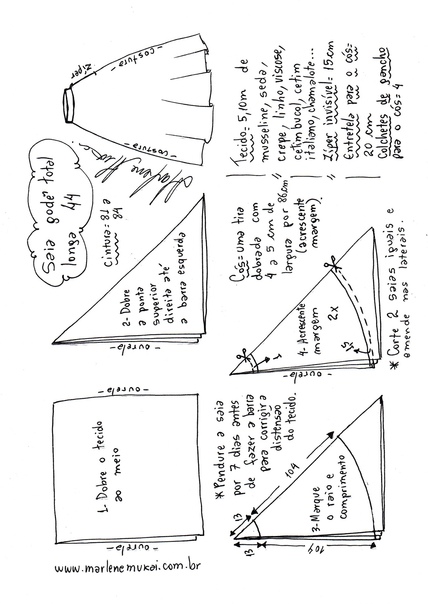 Saia godê total
longa 44
cintura= 81 a
84
zíper
- costura -
- costura -
Marlene Mukai
1- Dobre o tecido
ao meio
- ourela -
- ourela -
2- Dobre
a ponta
superior
direita até
a barra esquerda
- ourela -
www.marlenemukai.com.br
* Pendure a saia
por 7 dias antes
de fazer a barra
para corrigir a
distensão
do tecido.
3- Marque
o raio e
comprimento
13
104
13
104
4- Acrescente
margem
2x
1
1,5
Cós= uma tira
dobrada com
4 a 5 cm de
largura por 86cm
(acrescente
margem).
* Corte 2 saias iguais e
emende nas laterais.
Tecido= 5,10m de
musseline, seda,
crepe, linho, viscose,
cetim bucol, cetim
italiano, chamalote...
Zíper invisível= 15 cm
Entretela para o cós=
20 cm
Colchetes de gancho
para o cós= 4